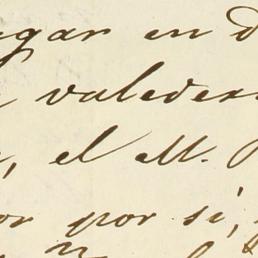 egar en d
valeder
, el M.
or por sí,